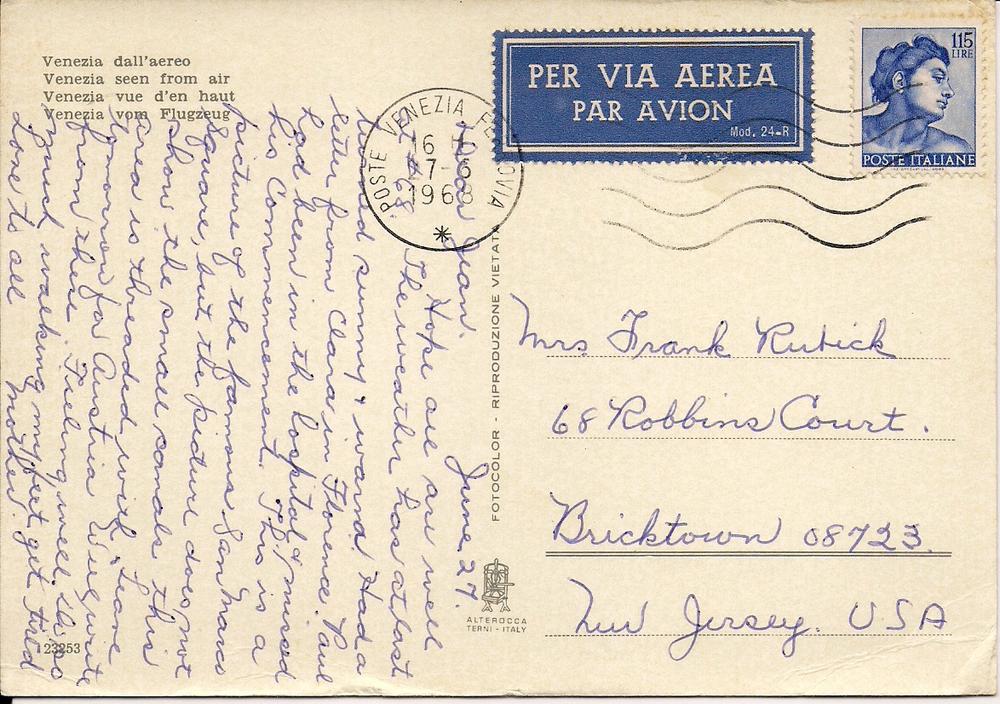 Venezia dall'aereo
Venezia seen from air
Venezia vue d'en haut
Venezia vom Flugzeug
PER VIA AEREA
PAR AVION
Mod. 24-R
115
LIRE
POSTE ITALIANE
POSTE VENEZIA FERROVIA
16
7-6
1968
June 27.
Dear Jean.
1968 Hope all are well
The weather has at last
turned sunny & warm. Had a
letter from Clara in Florence. Paul
had been in the hospital & missed
his Commencement. This is a
picture of the famous San Marco
Square, but the picture does not
show the small canals this
area is threaded with. Leave
tomorrow for Austria. Will write
from there. Feeling well, do so
much walking my feet get tired
Love to all Mother.
FOTOCOLOR - RIPRODUZIONE VIETATA
ALTEROCCA
TERNI - ITALY
123253
Mrs Frank Rubick
68 Robbins Court.
Bricktown 08723.
New Jersey. USA